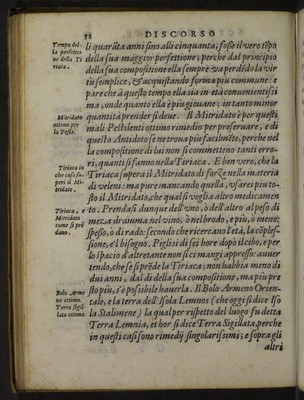 52 DISCORSO
Tempo della perfettione della Tiriaca.
li quarāta anni sino alli cinquanta, fosse il vero tēpo
della sua maggior perfettione; perche dal principio
della sua compositione ella sempre va perdēdo la virtù
semplice, & acquistando forma più commune: e
pare che à questo tempo ella sia in età conuenientissi
ma; onde quanto ella è più giouane; in tanto minor
quantità prender si deue. Il Mitridato è per questi
Mitridato ottimo per la Peste.
mali Pestilenti ottimo rimedio per preseruare, e di
questo Antidoto se ne troua più facilmēte, perche nel
la compositione di lui non si commetteno tanti erro-
ri, quanti si fanno nella Tiriaca. E ben vero, che la
Tiriaca in che cosa superi il Mitridato.
Tiriaca supera il Mitridato di forze nella materia
di veleni: ma pure mancando quella, vsarei piu to-
sto il Mitridato, che qual si voglia altro medicamen
Tiriaca, e Mitridato come si prēdano.
to. Prendasi dunque dell'vno, ò dell'altro al peso di
meza dramma nel vino, ò nel brodo, e più, ò meno;
spesso, ò di rado: secondo che ricercano l'età, la cōples-
sione, e'l bisogno. Piglisi di sei hore dopò il cibo, e per
lo spacio d'altretante non si ci mangi appresso: auuer
tendo, che se si prēde la Tiriaca; non habbia meno di
dui anni, dal dì della sua compositione, ma più pre
sto più, s'è possibile hauerla. Il Bolo Armeno Orien-
Bolo Armeno ottimo. Terra Sigillata ottima.
tale, e la terra dell'Isola Lemnos (che oggi si dice Iso
la Stalimene) la qual per rispetto del luogo fu detta
Terra Lemnia, et hor si dice Terra Sigillata, perche
in questi casi sono rimedij singolarissimi; e sopra gli
altri